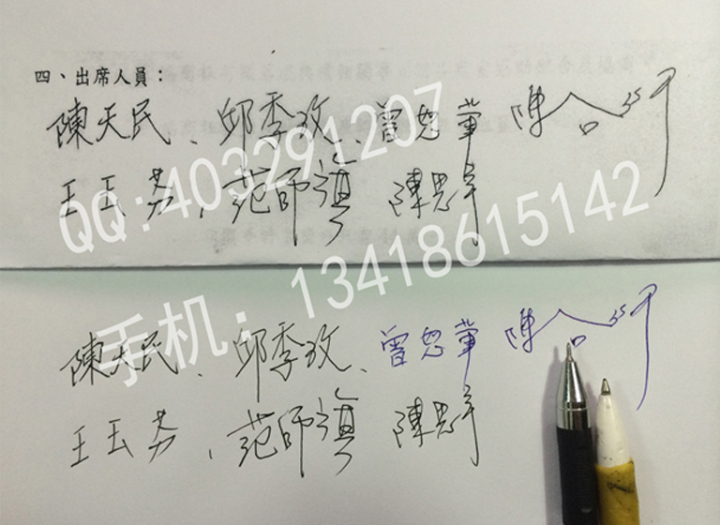 四、出席人員：
陳天民、邱季玫、曾思華 陳
王玉芬、范師 陳思
QQ:403291207
手机：13418615142
陳天民、邱季玫、曾思華 陳
王玉芬、范師 陳思